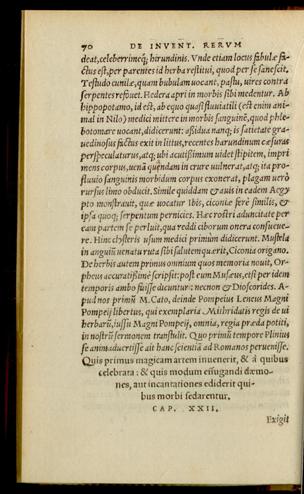 70 DE INVENT. RERVM
deat, celeberrimeq; hirundinis. Vnde etiam locus fabulæ fi-
ctus est, per parentes id herba restitui, quod per se sanescit.
Testudo cunilæ, quam bubulam uocant, pastu, uires contra
serpentes refouet. Hedera apri in morbis sibi medentur. Ab
hippopotamo, id est, ab equo quasi fluuiatili (est enim ani-
mal in Nilo) medici mittere in morbis sanguinẽ, quod phle
botomare uocant, didicerunt: assidua nanq; is satietate gra-
uedinosus factus exit in littus, recentes harundinum cæsuras
perspeculaturus, atq; ubi acutissimum uidet stipitem, impri
mens corpus, uenã quandam in crure uulnerat, atq; ita pro-
fluuio sanguinis morbidum corpus exonerat, plagam uerò
rursus limo obducit. Simile quiddam & auis in eadem Aegy
pto monstrauit, quæ uocatur Ibis, ciconiæ ferè similis, &
ipsa quoq; serpentum pernicies. Hæc rostri aduncitate per
eam partem se perluit, qua reddi ciborum onera consueue-
re. Hinc clysteris usum medici primùm didicerunt. Mustela
in anguiũ uenatu ruta sibi salutem quærit, Ciconia origano.
De herbis autem primus omnium quos memoria nouit, Or-
pheus accuratissimè scripsit: post eum Musæus, etsi per idem
temporis ambo fuisse dicuntur: necnon & Dioscorides. A-
pud nos primũ M. Cato, deinde Pompeius Leneus Magni
Pompeij libertus, qui exemplaria Mithridatis regis de ui
herbarũ, iussu Magni Pompeij, omnia, regia præda potiti,
in nostrũ sermonem transtulit. Quo primũ tempore Plinius
se animaduertisse ait hanc scientiã ad Romanos peruenisse.
Quis primus magicam artem inuenerit, & à quibus
celebrata: & quis modum effugandi dæmo-
nes, aut incantationes ediderit qui-
bus morbi sedarentur.
CAP. XXII.
Exigit